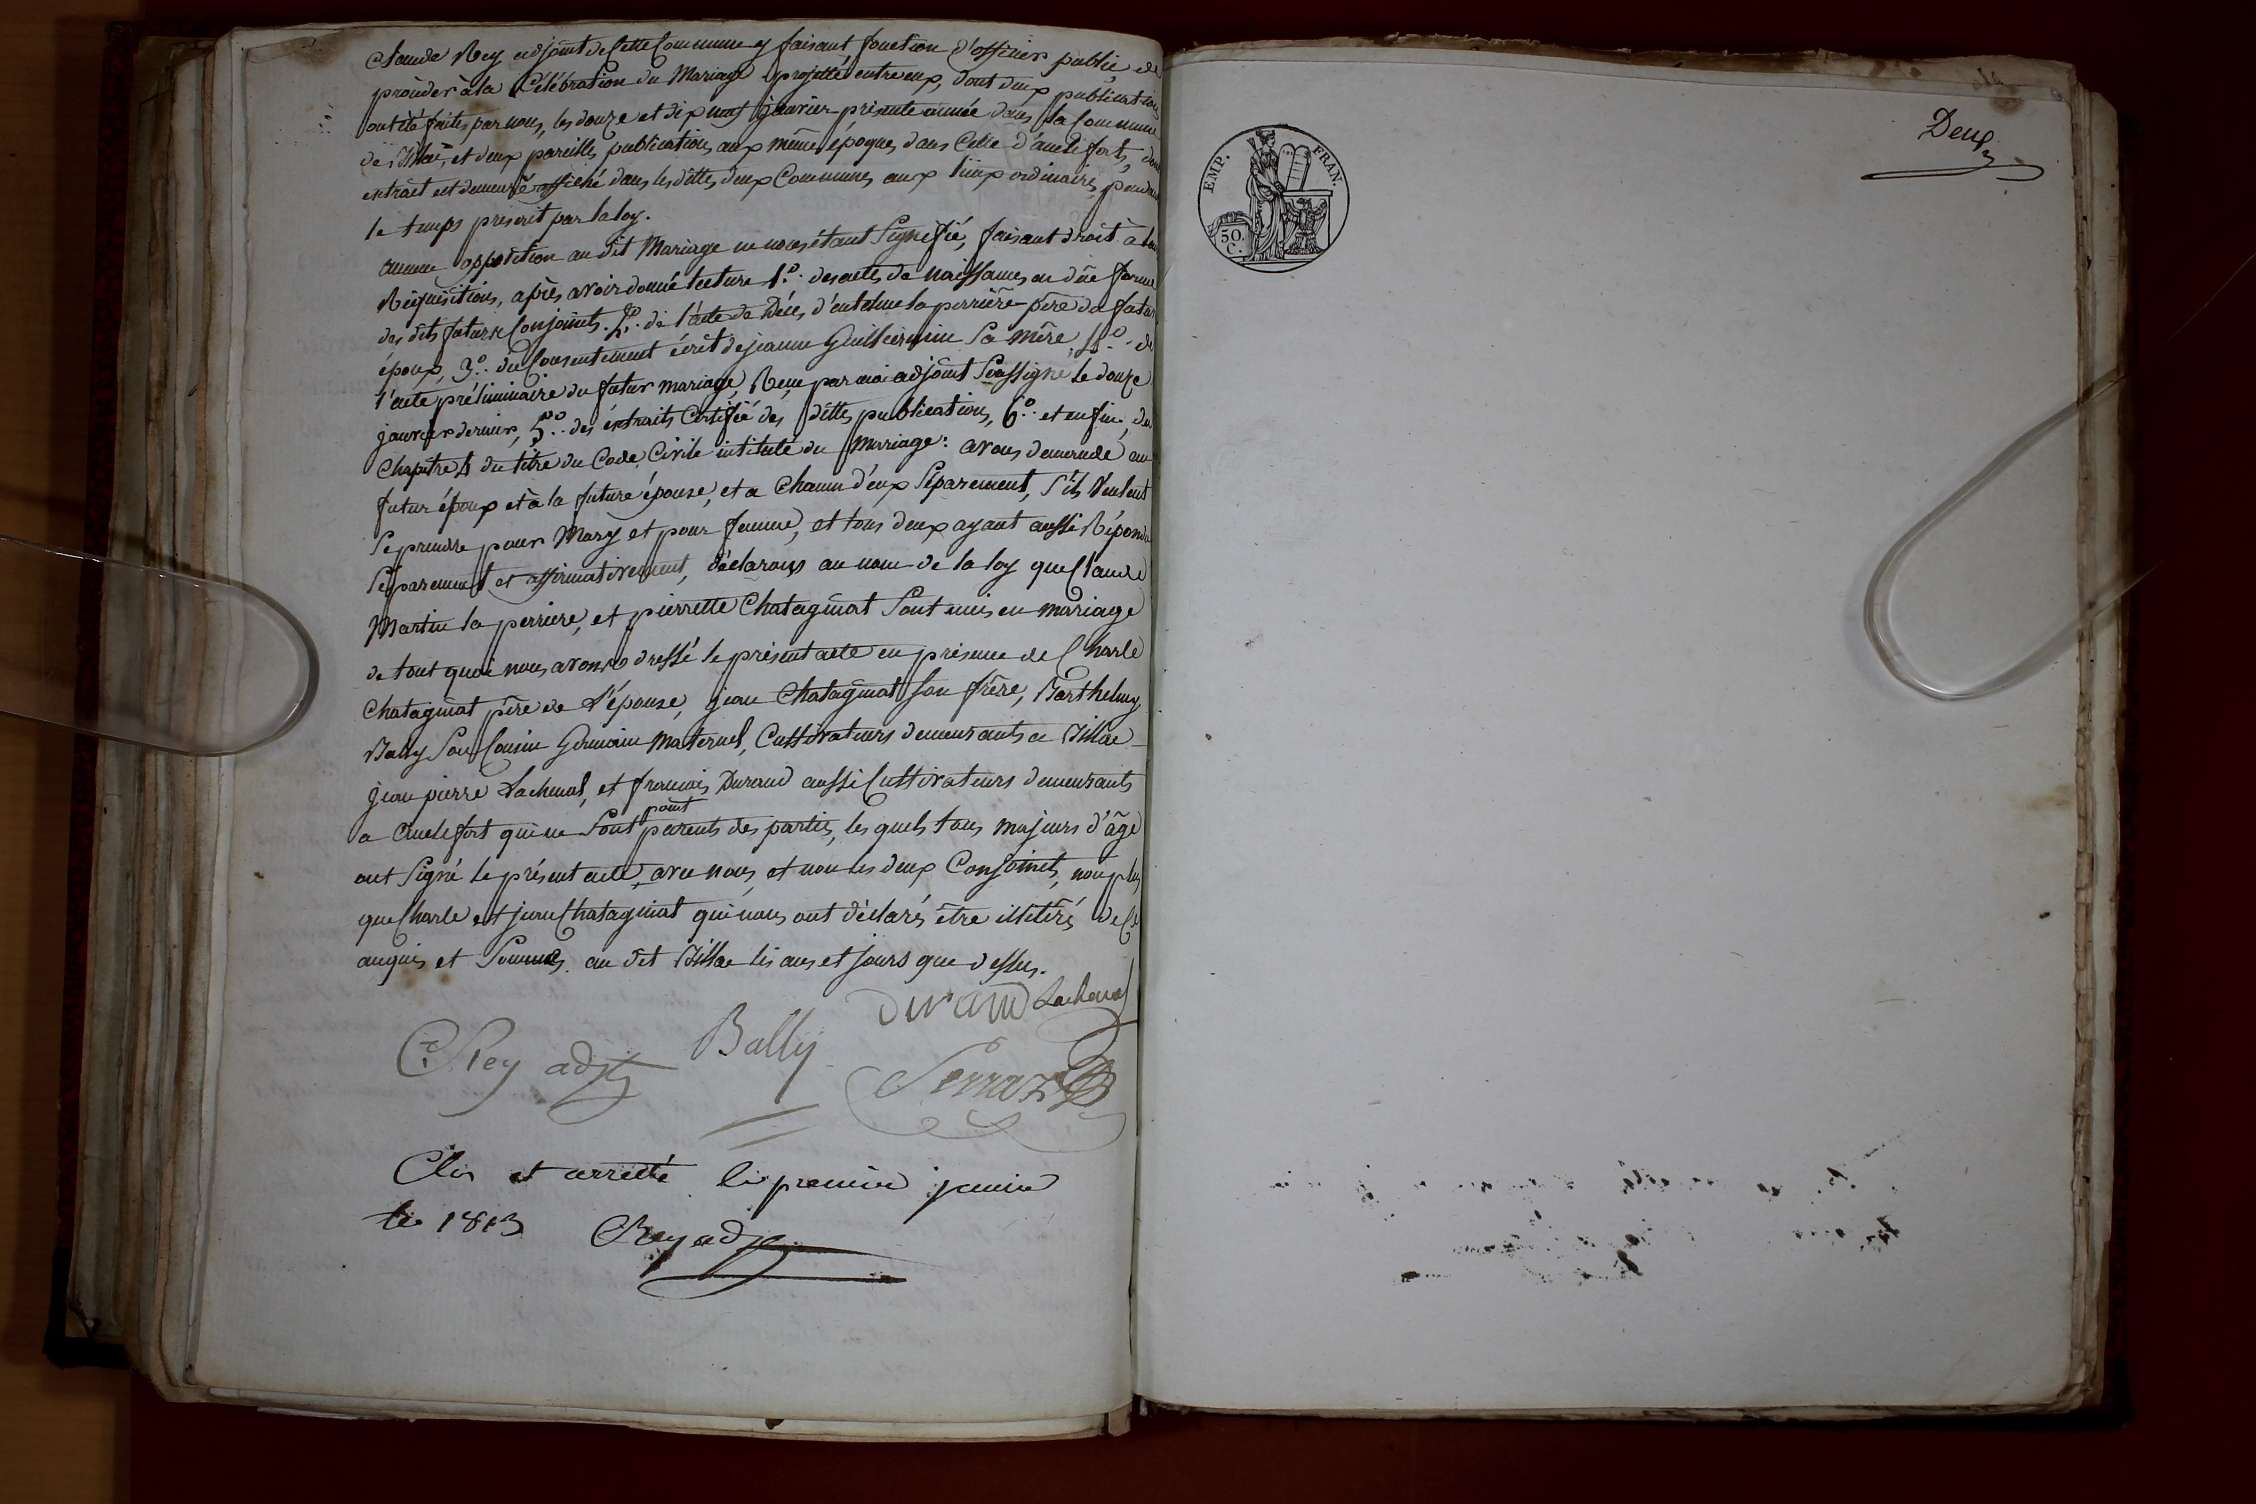 Claude Rey adjoint de Cette Commune y faisant fonction d'officier public de
procéder à la Célébration du Mariage projetté entre eux, dont deux publications
ont été faites par nous, les douze et dix neuf janvier présente année dans la Commune
de et deux pareilles publications aux même époques dans Celle dont
extrait est demeuré affiché dans les dittes deux Communes aux lieux ordinaires, pendant
le temps prescrit par la loy.
aucune opposition au dit Mariage ne nous étant Signifié, faisant droit à leur
Réquisitions, après avoir donné lecture 1.º des actes de naissances en düe forme
des dits futurs Conjoints. 2.º de l'acte de Décès d'antelme la perrière père du futur
époux, 3.º du Consentement écrit de jeanne Guilliermin Sa mère, 4.º de
l'acte préliminaire du futur mariage, Reçu par moi adjoint Soussigné le douze
janvier dernier, 5.º des éxtraits Certifié des dittes publications, 6.º et enfin, du
Chapitre 4 du titre du Code Civile intitulé du Mariage: avons demandé au
futur époux et à la future épouse, et a Chacun d'eux Séparement, S'ils Veulent
Se prendre pour Mary et pour femme, et tous deux ayant aussi Répondu
Séparement et affirmativement, déclarons au nom de la loy que Claude
Martin la perriere, et pierrette Chatagniat Sont unis en mariage
de tout quoi nous avons dressé le présent acte en présence de Charle
Chatagniat père de l'épouse, jean Chatagniat Son frère, Barthelmy
Bally Son Cousin Germain Maternel, Cultivateurs demeurants a
jean pierre Lachenal, et françois Durand aussi Cultivateurs demeurants
a qui ne Sont point parents des parties, les quels tous majeurs d'âge
ont Signé le présent acte, avec nous, et non les deux Conjoints, non plus
que Charle et jean Chatagniat qui nous ont déclarés être illitérés de Ce
enquis et Sommés au dit les ans et jours que dessus.
Durand Lachenal
Cde Rey adjt Bally
Perraz
Clos et arretté le premier janvier
1813 CRey adjt
Deux
EMP. FRAN.
50.
C.